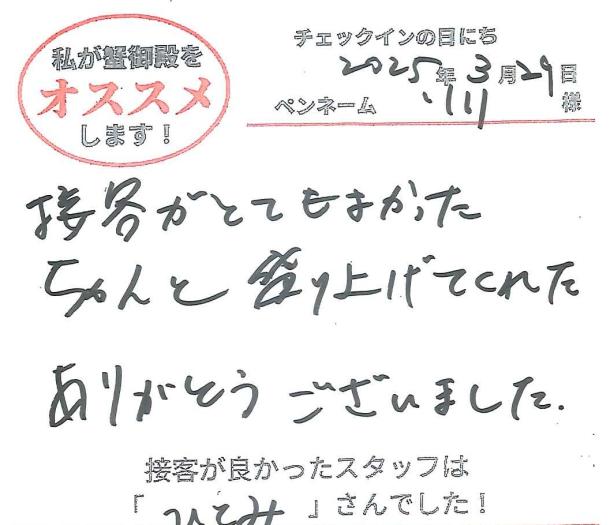 私が蟹御殿を
オススメ
します!
チェックインの日にち
2025年3月29日
ペンネーム 様
接客がとてもよかった
ちゃんと盛り上げてくれた
ありがとうございました.
接客が良かったスタッフは
「ひとみ」さんでした!